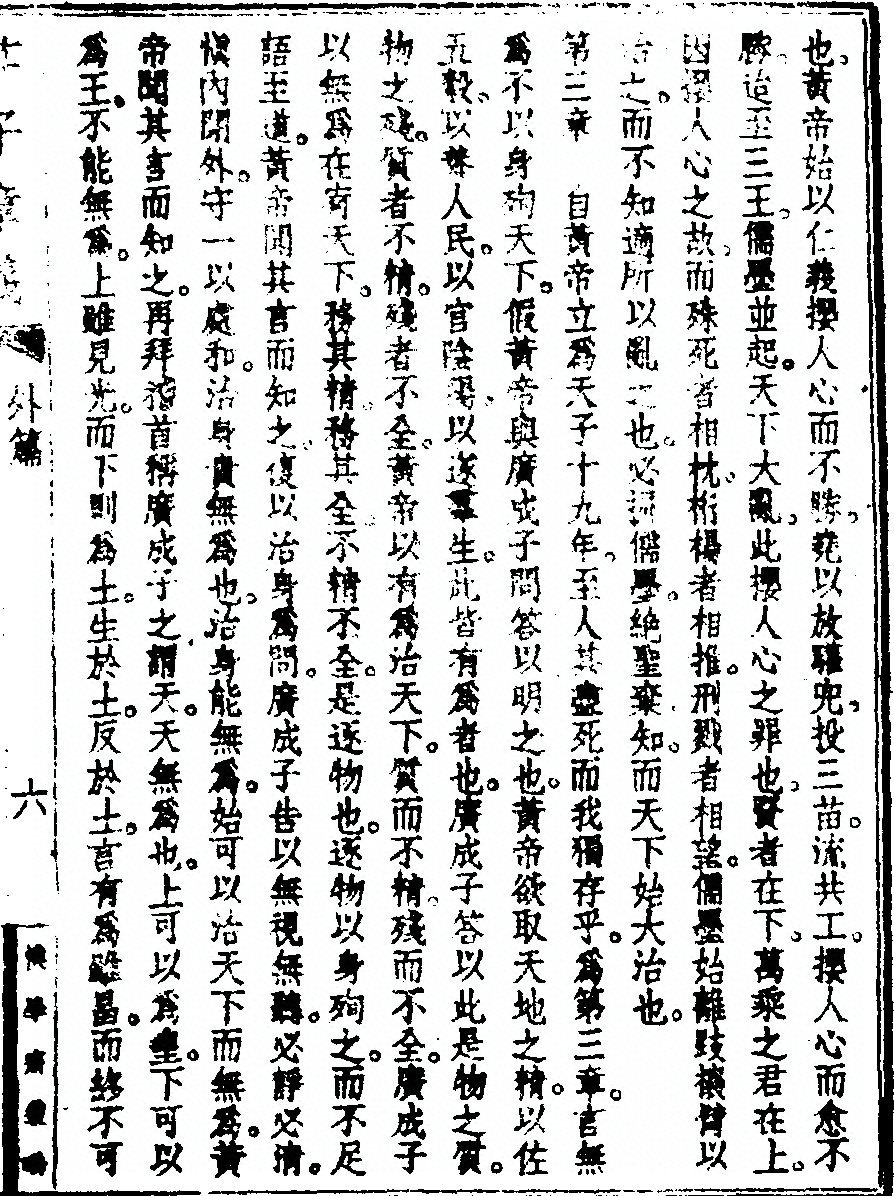 也。黃帝始以仁義攖人心而不勝。堯以放驩兜。投三苗。流共工。攖人心而愈不
勝。迨至三王。儒墨並起。天下大亂。此攖人心之罪也。賢者在下。萬乘之君在上。
因攖人心之故。而殊死者相枕。桁楊者相推。刑戮者相望。儒墨始離跂攘臂以
治之。而不知適所以亂之也。必儒墨。絕聖棄知。而天下始大治也。
第三章　自黃帝立為天子十九年。至人其盡死而我獨存乎。為第三章。言無
為不以身殉天下。假黃帝與廣成子問答以明之也。黃帝欲取天地之精。以佐
五穀。以養人民。以官陰陽。以遂羣生。此皆有為者也。廣成子答以此是物之質。
物之殘。質者不精。殘者不全。黃帝以有為治天下。質而不精。殘而不全。廣成子
以無為在宥天下。務其精。務其全。不精不全。是逐物也。逐物以身殉之。而不足
語至道。黃帝聞其言而知之。復以治身為問。廣成子告以無視無聽。必靜必清。
慎內閉外。守一以處和。治身貴無為也。治身能無為。始可以治天下而無為。黃
帝聞其言而知之。再拜稽首稱廣成子之謂天。天無為也。上可以為皇。下可以
為王。不能無為。上雖見光。而下則為土。生於土。反於土。言有為雖昌。而終不可
外篇
六